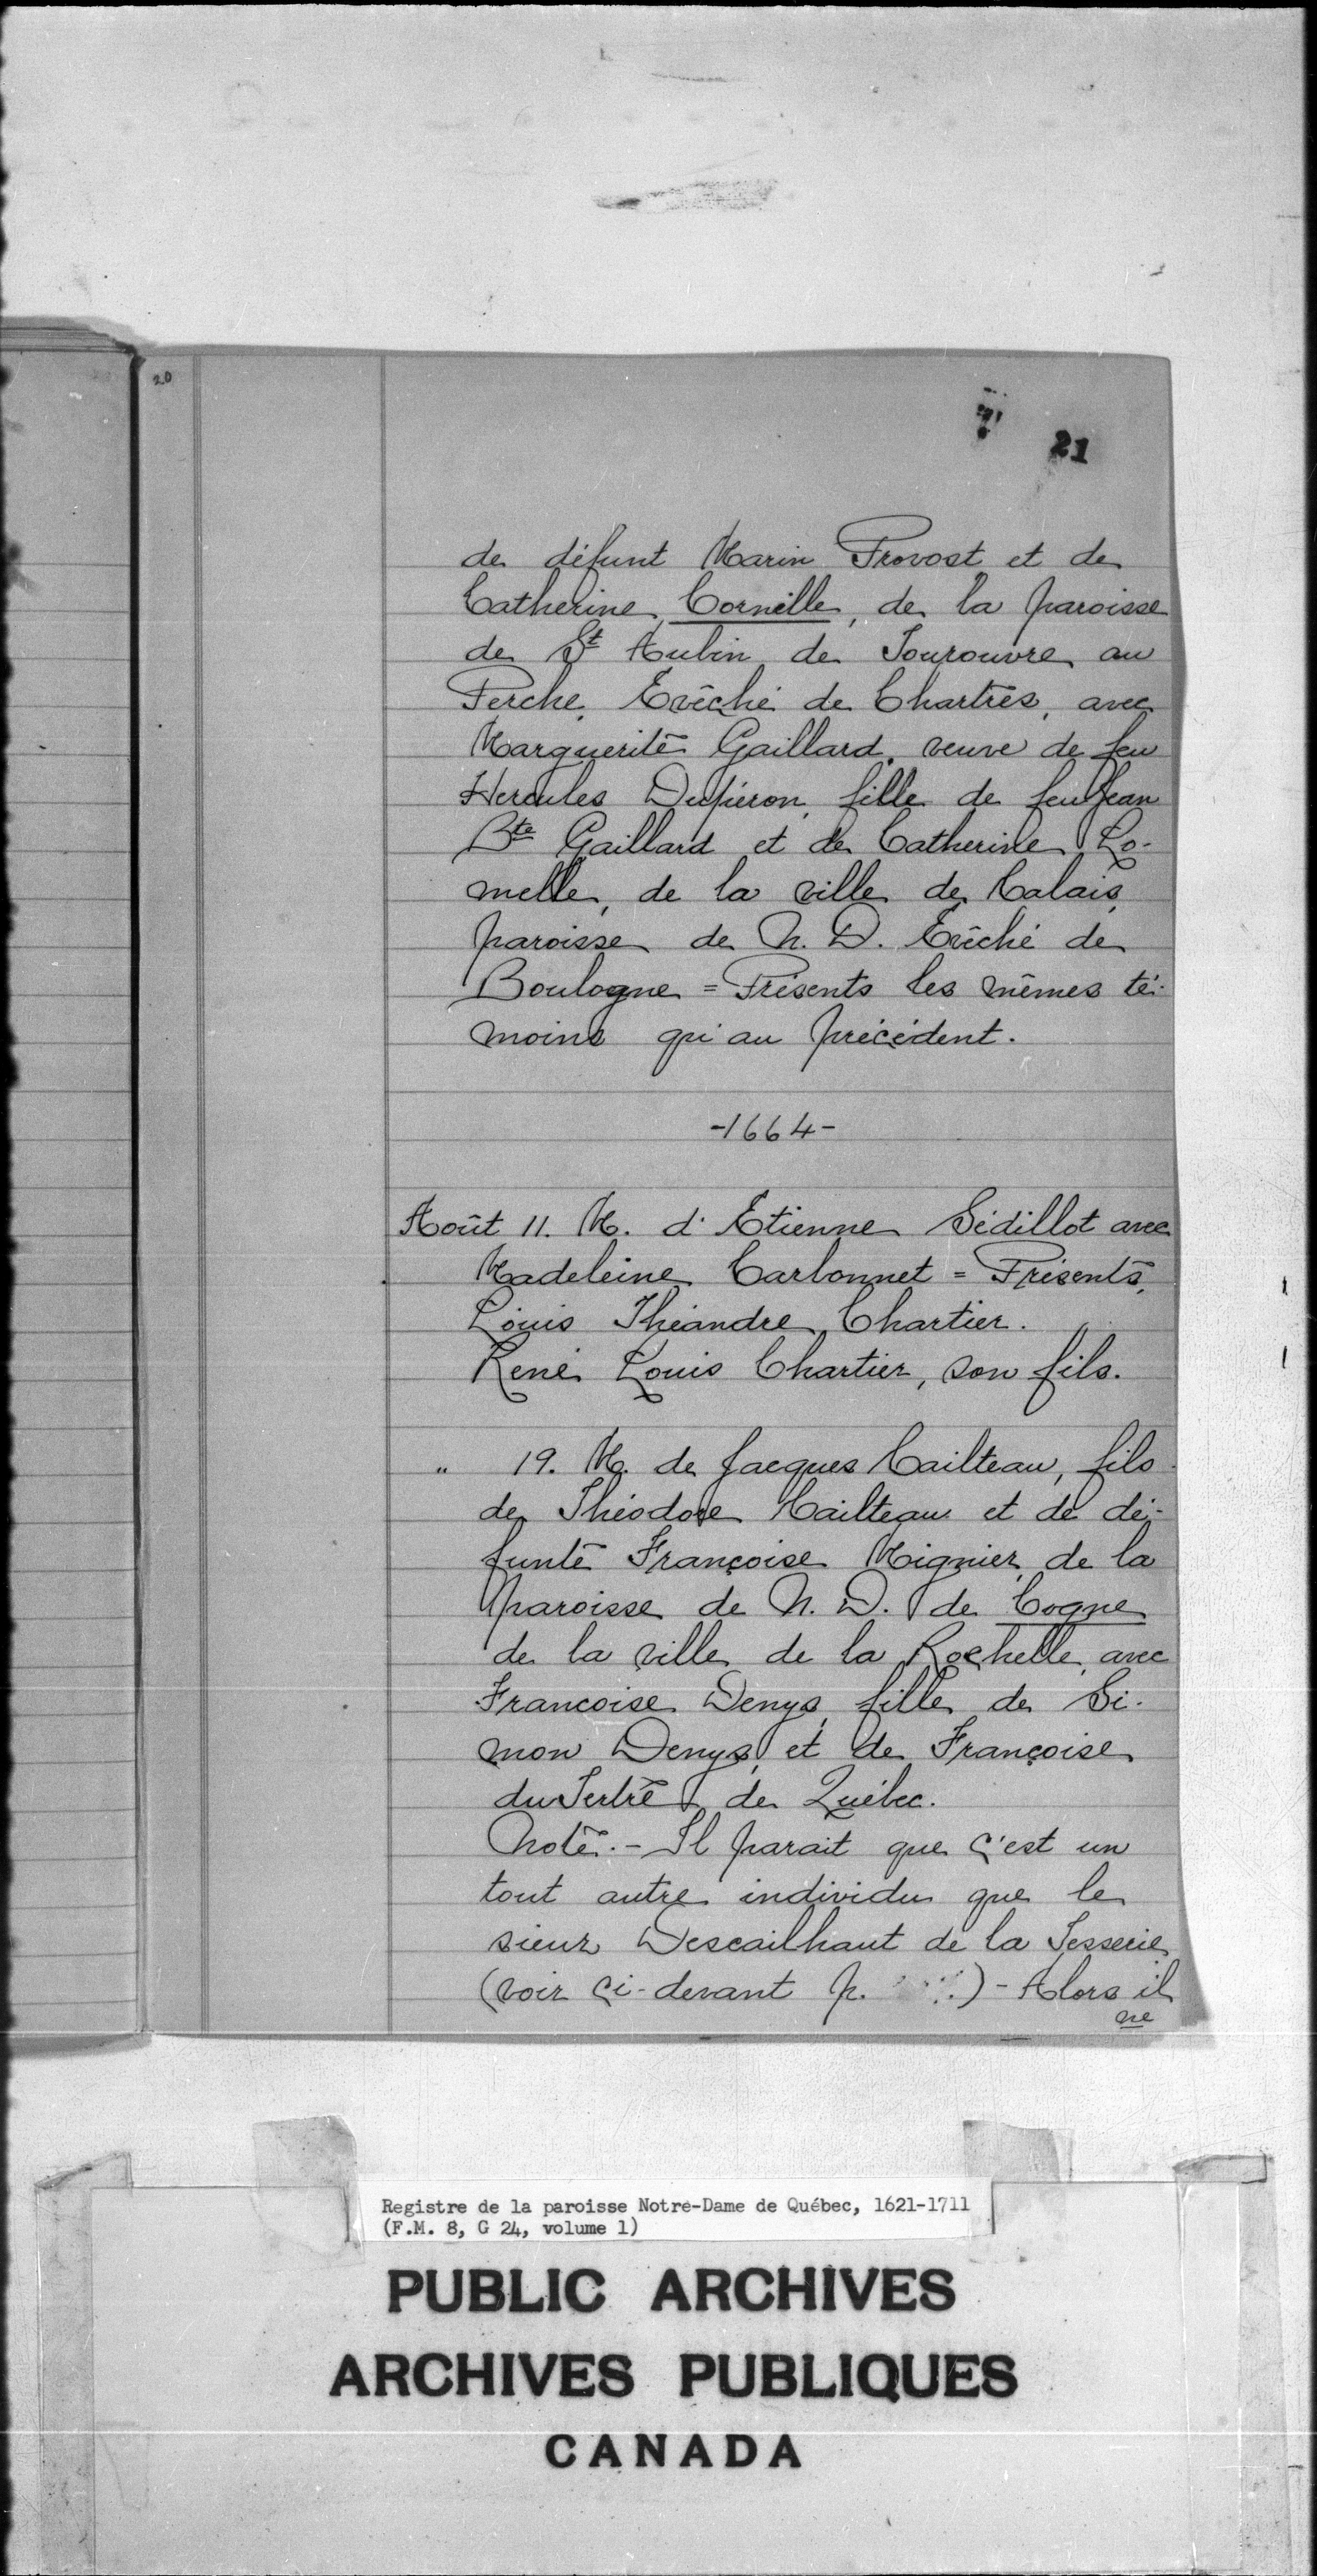 20
21
de défunt Marin Provost et de
Catherine Cornille, de la paroisse
de St Aubin de Tourouvre au
Perche, Evêché de Chartres, avec
Marguerite Gaillard, veuve de feu
Hercules Dupéron, fille de feu Jean
Bte Gaillard et de Catherine Lo-
melle, de la ville de Calais,
paroisse de N. D. Evêché de
Boulogne = Présents les mêmes té-
moins qu'au précédent.
-1664-
Août 11. M. d'Etienne Sédillot avec
Madeleine Carbonnet = Présents,
Louis Théandre Chartier.
René Louis Chartier, son fils.
" 19. M. de Jacques Cailteau, fils
de Théodore Cailteau et de dé-
funte Françoise Mignier, de la
paroisse de N. D. de Cogne
de la ville de la Rochelle, avec
Francoise Denys, fille de Si-
mon Denys, et de Françoise
du Tertre de Québec.
Note.- Il parait que c'est un
tout autre individu que le
sieur Descailhaut de la Tesserie
(voir ci-devant p. ) - Alors il
ne
Registre de la paroisse Notre-Dame de Québec, 1621-1711
(F.M. 8, G 24, volume 1)
PUBLIC ARCHIVES
ARCHIVES PUBLIQUES
CANADA